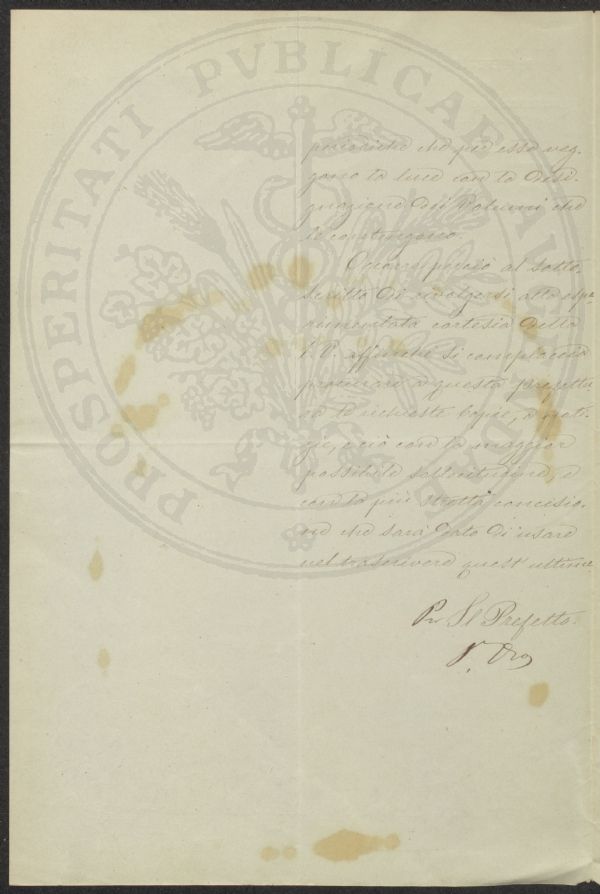 PROSPERITATI PVBLICAE AVGENDAE
periodiche che per essa veg-
gano la luce con la desi-
gnazione dei Volumi che
le contengono.
Occorre perciò al sotto-
scritto di rivolgersi alla espe-
rimentata cortesia della
S. V. affinché si compiaccia
procurare a questa prefettu-
ra le richieste copie, o noti-
zie, e ciò con la maggior
possibile sollecitudine, e
con la più stretta concisio-
ne che sarà dato di usare
nel trascrivere quest'ultime
Pr Il Prefetto